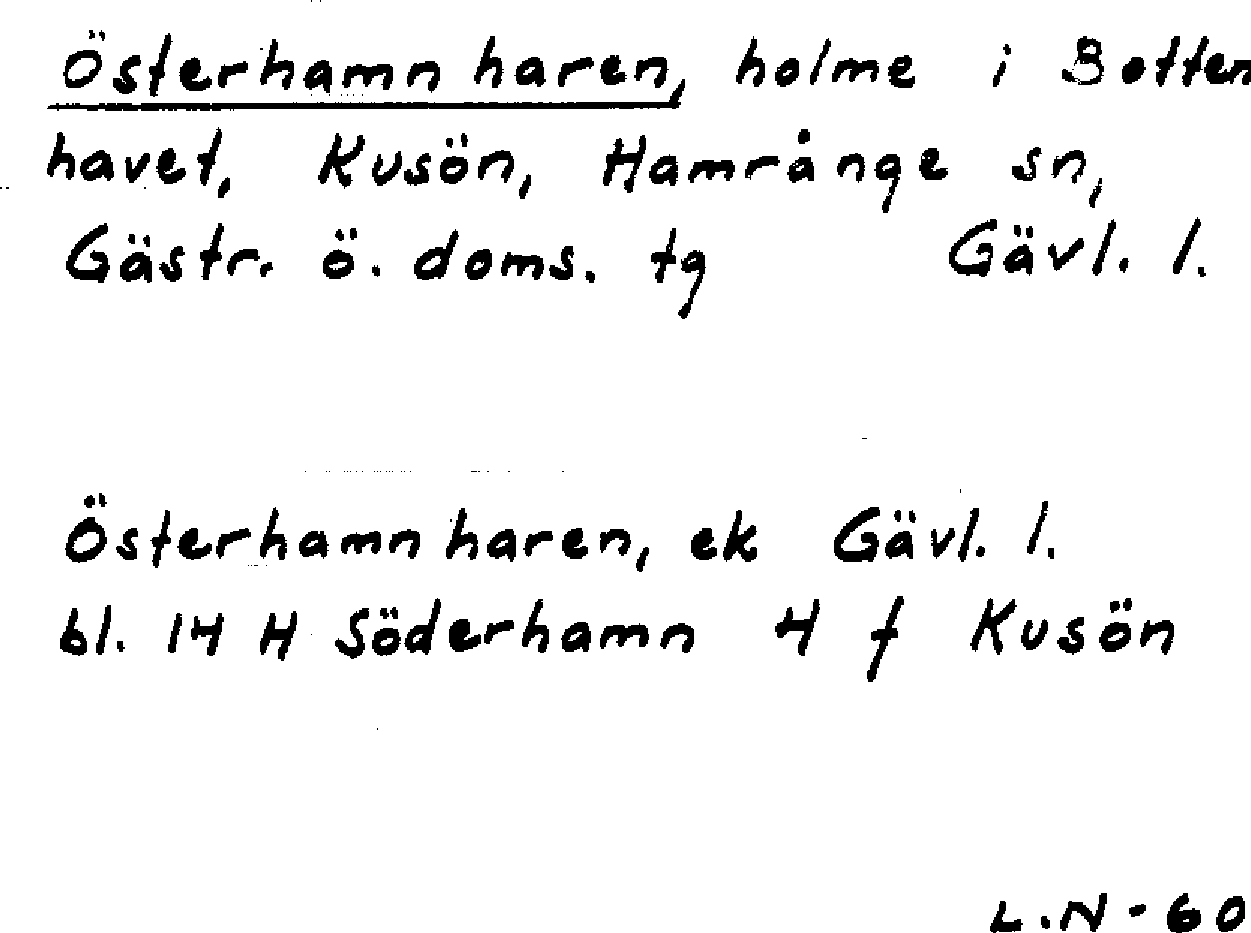 Österhamnharen, holme i Botten
havet, Kusön, Hamrånge sn,
Gästr. ö. doms. tg Gävl. l.
Österhamnharen, ek Gävl. l.
bl. 14 H Söderhamn 4 f Kusön
L.N-60